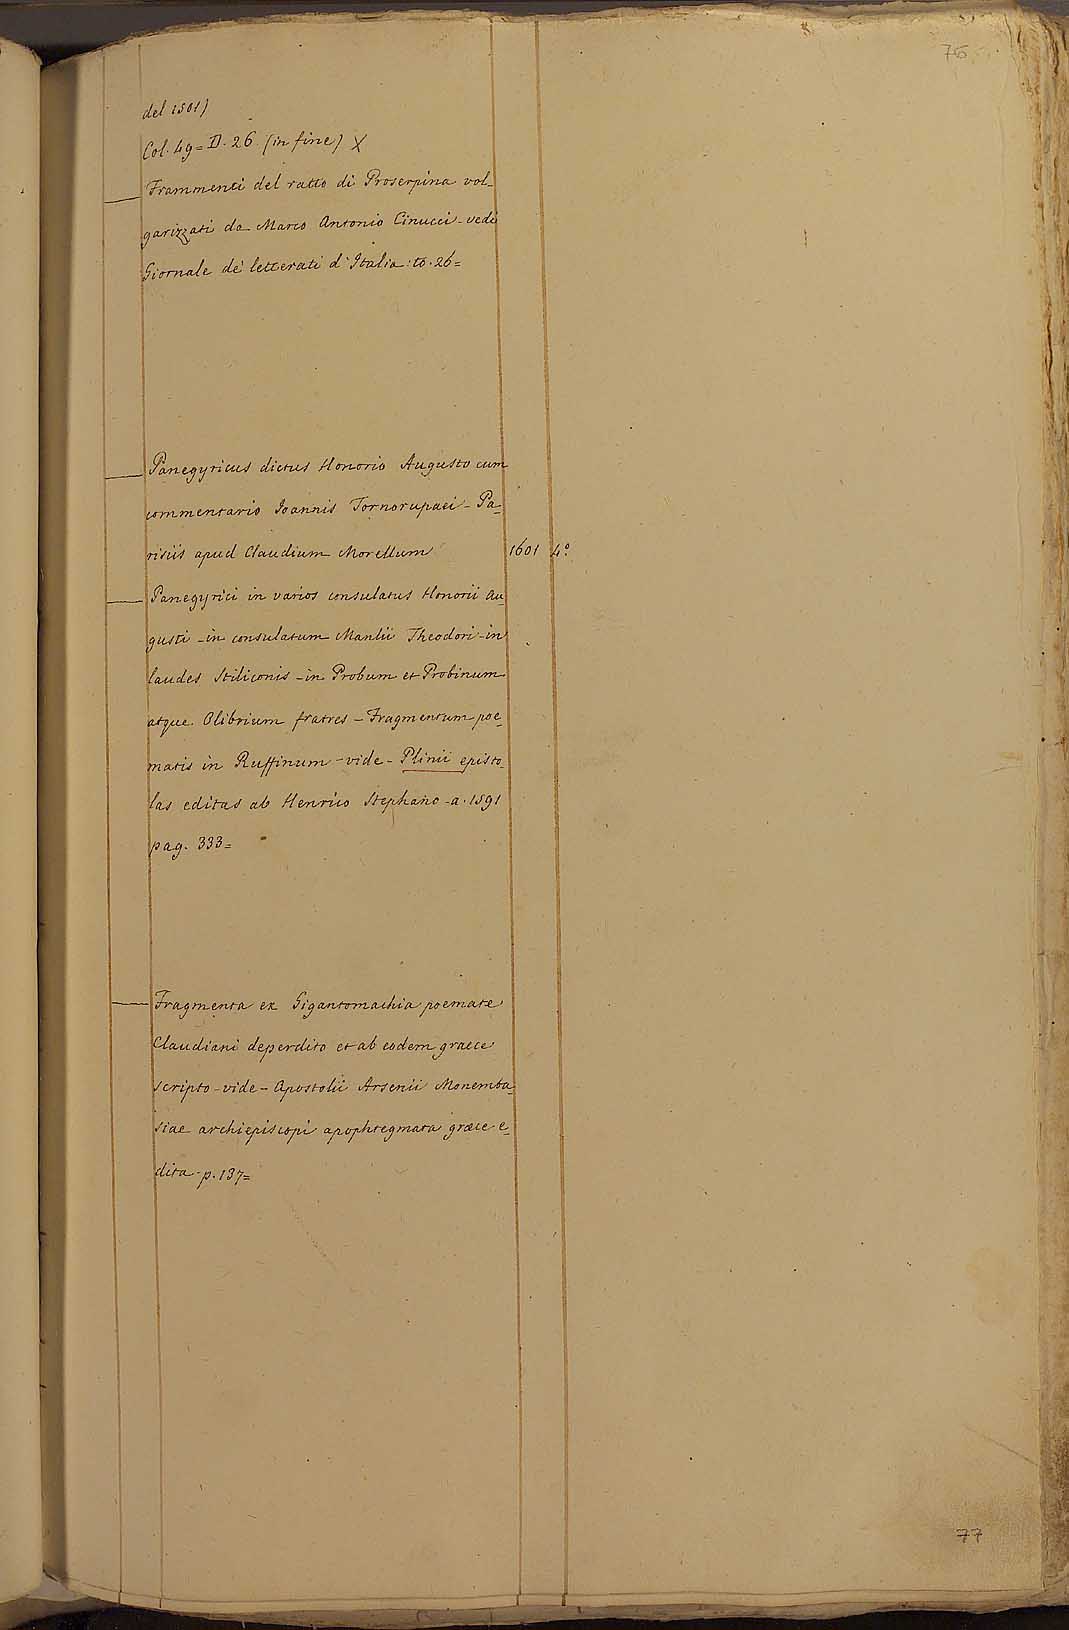 76
del 1501)
Col. 49 = D. 26 (in fine) X
Frammenti del ratto di Proserpina vol_
garizzati da Marco Antonio Cinucci - vedi
Giornale de' letterati d'Italia: to. 26 =
Panegyricus dictus Honorio Augusto cum
commentario Ioannis Tornorupaei - Pa_
risiis apud Claudium Morellum 1601 4º
Panegyrici in varios consulatus Honorii Au_
gusti - in consulatum Manlii Theodori - in
laudes Stiliconis - in Probum et Probinum
atque Olibrium fratres - Fragmentum poe_
matis in Ruffinum - vide - Plinii episto_
las editas ab Henrico Stephano - a. 1591
pag. 333 =
Fragmenta ex Gigantomachia poemate
Claudiani deperdito et ab eodem graece
scripto - vide - Apostolii Arsenii Monemba_
siae archiepiscopi apophtegmata græce e_
dita - p. 137 =
77